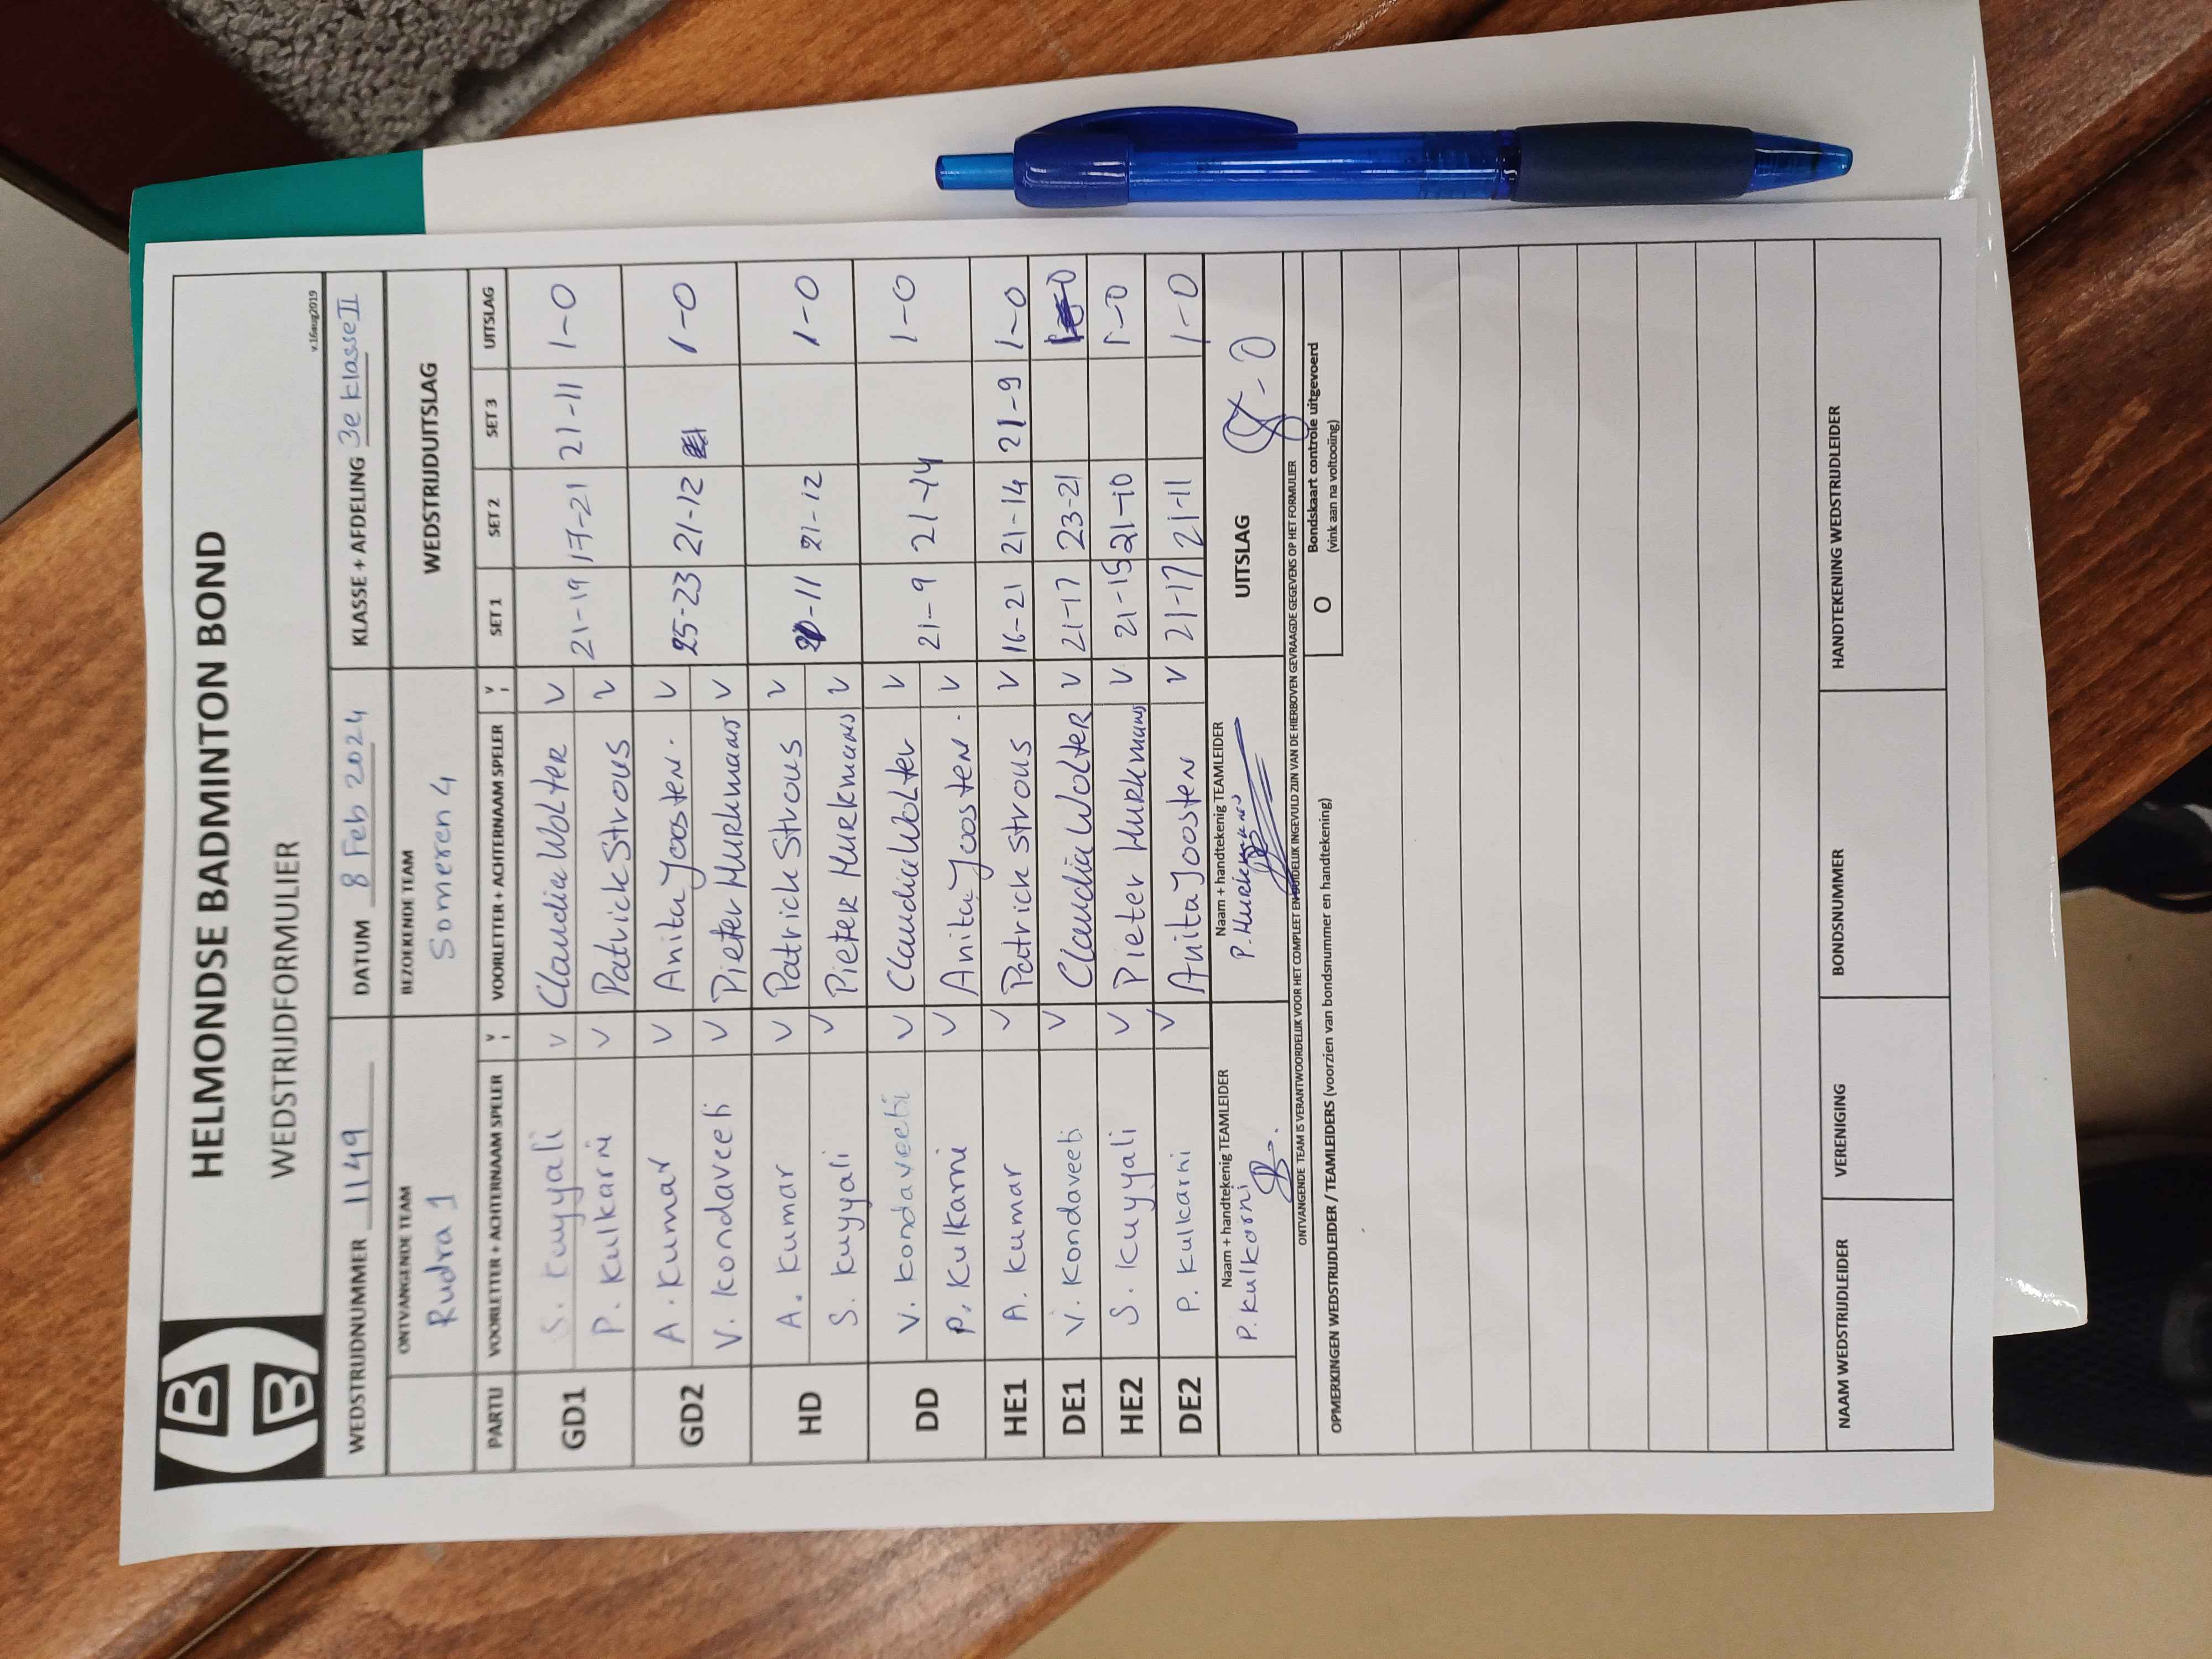 HELMONDSE BADMINTON BOND
WEDSTRIJDFORMULIER
v.16aug2019
WEDSTRIJDNUMMER 1149 DATUM 8 Feb 2024 KLASSE + AFDELING 3e klasse II
ONTVANGENDE TEAM BEZOEKENDE TEAM WEDSTRIJDUITSLAG
Rudra 1 Someren 4
PARTIJ VOORLETTER + ACHTERNAAM SPELER V VOORLETTER + ACHTERNAAM SPELER V SET 1 SET 2 SET 3 UITSLAG
GD1 S. Kuyyali V Claudia Wolter V 21-19 17-21 21-11 1-0
P. Kulkarni V Patrick Strous V
GD2 A. Kumar V Anita Joosten. V 25-23 21-12 1-0
V. Kondaveeti V Pieter Hurkmans V
HD A. Kumar V Patrick Strous V 21-11 21-12 1-0
S. Kuyyali V Pieter Hurkmans V
DD V. Kondaveeti V Claudia Wolter V 21-9 21-14 1-0
P. Kulkarni V Anita Joosten. V
HE1 A. Kumar V Patrick Strous V 16-21 21-14 21-9 1-0
DE1 V. Kondaveeti V Claudia Wolter V 21-17 23-21 1-0
HE2 S. Kuyyali V Pieter Hurkmans V 21-15 21-10 1-0
DE2 P. Kulkarni V Anita Joosten V 21-17 21-11 1-0
Naam + handtekenig TEAMLEIDER Naam + handtekenig TEAMLEIDER UITSLAG 8-0
P. Kulkarni P. Hurkmans
ONTVANGENDE TEAM IS VERANTWOORDELIJK VOOR HET COMPLEET EN DUIDELIJK INGEVULD ZIJN VAN DE HIERBOVEN GEVRAAGDE GEGEVENS OP HET FORMULIER
O Bondskaart controle uitgevoerd
(vink aan na voltooiing)
OPMERKINGEN WEDSTRIJDLEIDER / TEAMLEIDERS (voorzien van bondsnummer en handtekening)
NAAM WEDSTRIJDLEIDER VERENIGING BONDSNUMMER HANDTEKENING WEDSTRIJDLEIDER